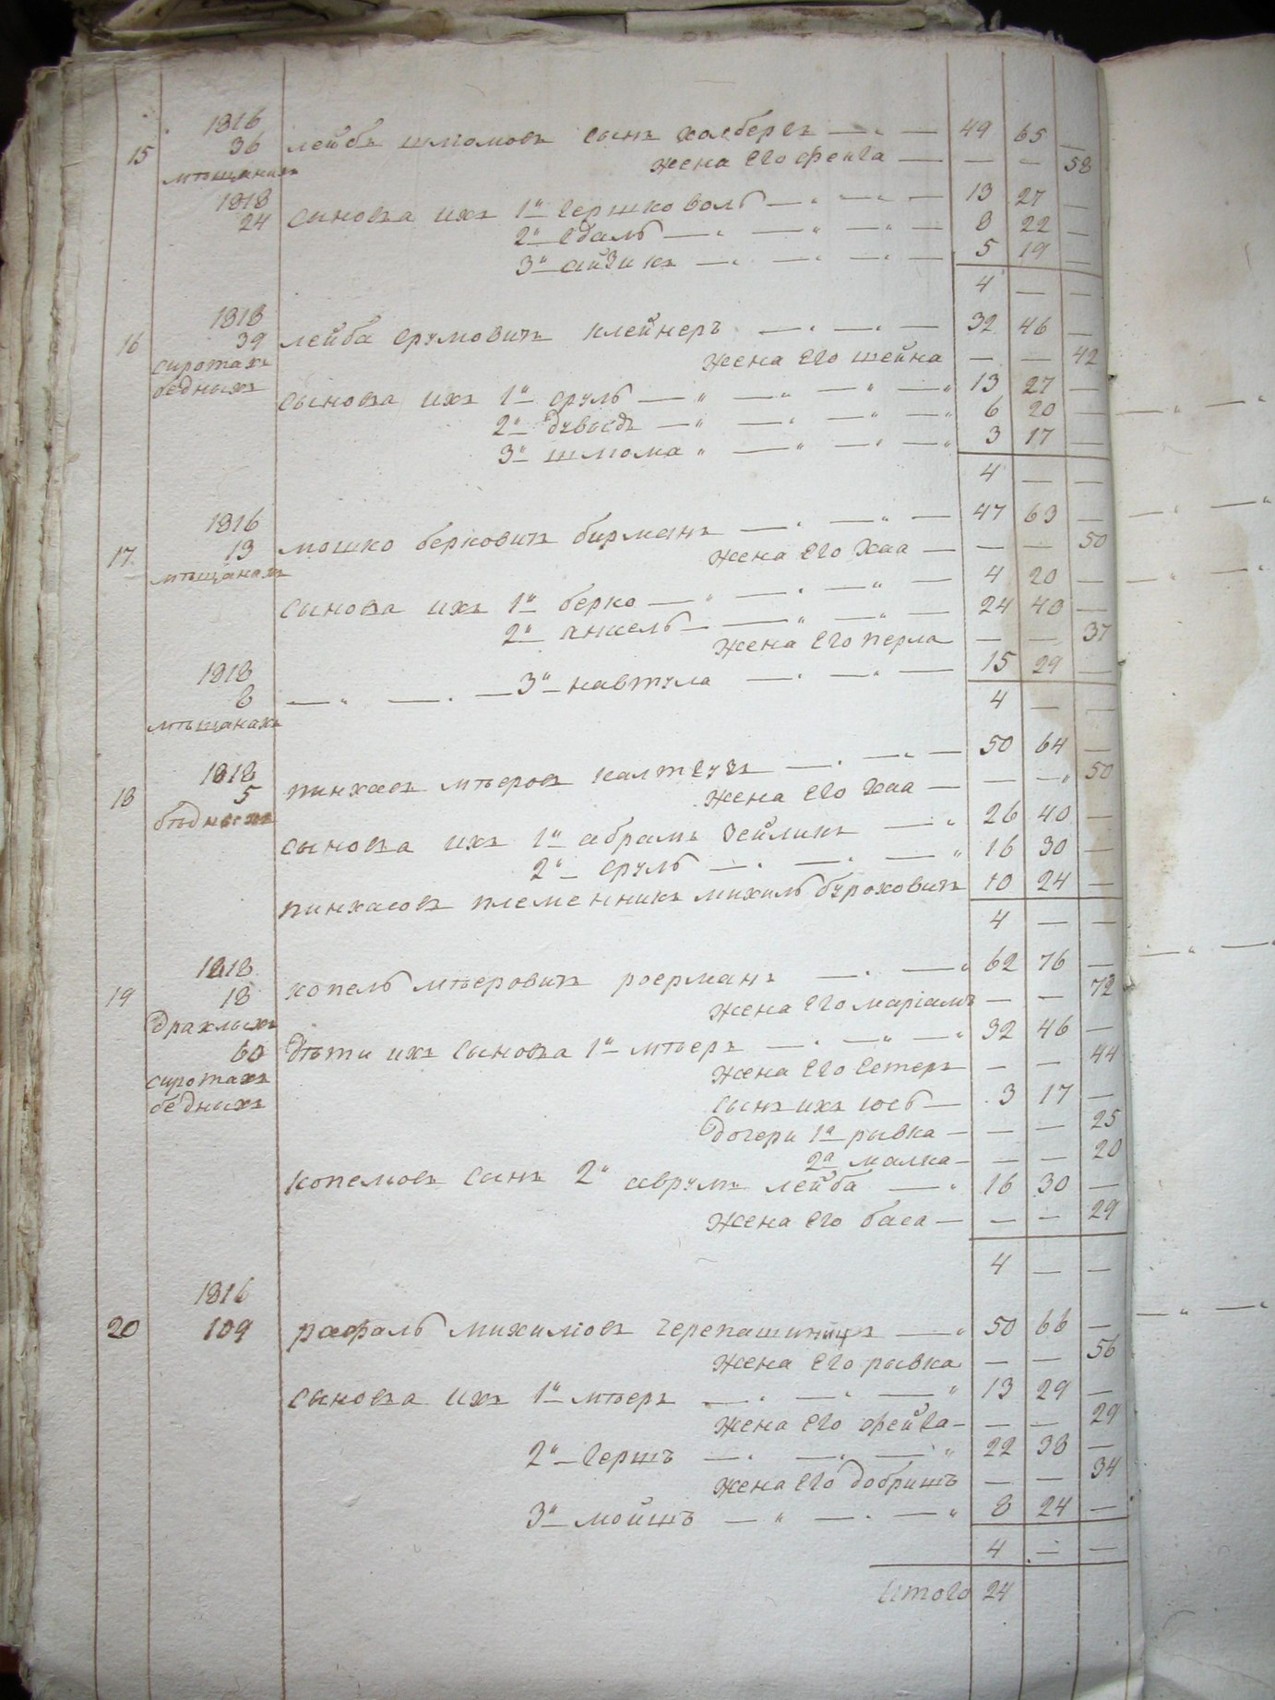 1816
15 36 лейбъ шмомовъ сынъ холбергъ 49 65 —
мѣщанахъ жена его фейга — — 58
1818
24 сыновья ихъ 1й гершко волъ 13 27 —
2й едаль 8 22 —
3й айзикъ 5 19 —
4 — —
1818
16 39 лейба срумовичъ клейнеръ 32 46 —
сиротахъ жена его шейна — — 42
бедныхъ
сыновья ихъ 1й сруль 13 27 —
2й дувыдъ 6 20 —
3й шмома 3 17 —
4 — —
1816
17 13 мошко берковичъ бирманъ 47 63 —
мѣщанахъ жена его хаа — — 50
сыновья ихъ 1й берко 4 20 —
2й анжель 24 40 —
жена его перла — — 37
1818
8 3й навтула 15 29 —
мѣщанахъ 4 — —
1818
18 5 пинхасъ мѣеровъ 50 64 —
бѣдныхъ жена его хаа — — 50
сыновья ихъ 1й абрамъ зейликъ 26 40 —
2й сруль 16 30 —
пинхасовъ племенникъ михиль бuроховичъ 10 24 —
4 — —
1818
19 18 копель мѣеровичъ роерманъ 62 76 —
драхлыхъ жена его маріамъ — — 72
60 дѣти ихъ сыновья 1й мѣеръ 32 46 —
сиротахъ жена его естеръ — — 44
бедныхъ сынъ ихъ юсь 3 17 —
дочери 1а рывка — — 25
2а малка — — 20
копелювъ сынъ 2й аврумъ лейба 16 30 —
жена его баса — — 29
4 — —
1816
20 109 рафаль михилювъ черепашинецъ 50 66 —
жена его рывка — — 56
сыновья ихъ 1й мѣеръ 13 29 —
жена его фейга — — 29
2й гершъ 22 38 —
жена его добришъ — — 34
3й мойшъ 8 24 —
4 — —
итого 24